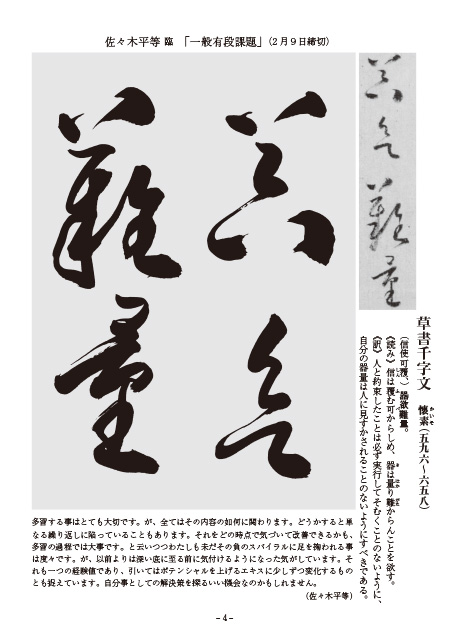 佐々木平等 臨 「一般有段課題」（2月9日締切）
器欲
難量
器欲難量
草書千字文 懐素（五九六〜六五八）
（信使可覆、）器欲難量。
《読み》信は覆む可からしめ、器は量り難からんことを欲す。
《訳》人と約束したことは必ず実行してそむくことのないように、
自分の器量は人に見すかされることのないようにすべきである。
多習する事はとても大切です。が、全てはその内容の如何に関わります。どうかすると単
なる繰り返しに陥っていることもあります。それをどの時点で気づいて改善できるかも、
多習の過程では大事です。と云いつつわたしも未だその負のスパイラルに足を掬われる事
は度々です。が、以前よりは深い底に至る前に気付けるようになった気がしています。そ
れも一つの経験値であり、引いてはポテンシャルを上げるエキスに少しずつ変化するもの
とも捉えています。自分事としての解決策を探るいい機会なのかもしれません。
（佐々木平等）
- 4 -